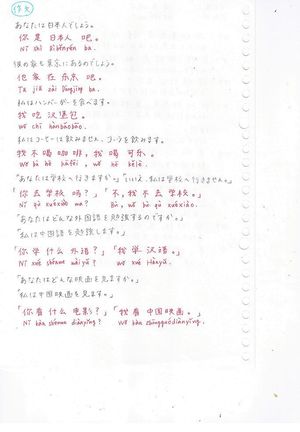 作文
あなたは日本人でしょう。
你是日本人吧。
Nǐ shì Rìběnrén ba.
彼の家も東京にあるのでしょう。
他家在东京吧。
Tā jiā zài Dōngjīng ba.
私はハンバーガーを食べます。
我吃汉堡包。
Wǒ chī hànbǎobāo.
私はコーヒーは飲みません、コーラを飲みます。
我不喝咖啡，我喝可乐。
Wǒ bù hē kāfēi, wǒ hē kělè.
「あなたは学校へ行きますか。」「いいえ、私は学校へ行きません。」
「你去学校吗？」「不，我不去学校。」
Nǐ qù xuéxiào ma? Bù, wǒ bú qù xuéxiào.
「あなたはどんな外国語を勉強するのですか。」
「私は中国語を勉強します。」
「你学什么外语？」「我学汉语。」
Nǐ xué shénme wàiyǔ? Wǒ xué Hànyǔ.
「あなたはどんな映画を見ますか。」
「私は中国映画を見ます。」
「你看什么电影？」「我看中国电影。」
Nǐ kàn shénme diànyǐng? Wǒ kàn zhōngguódiànyǐng.